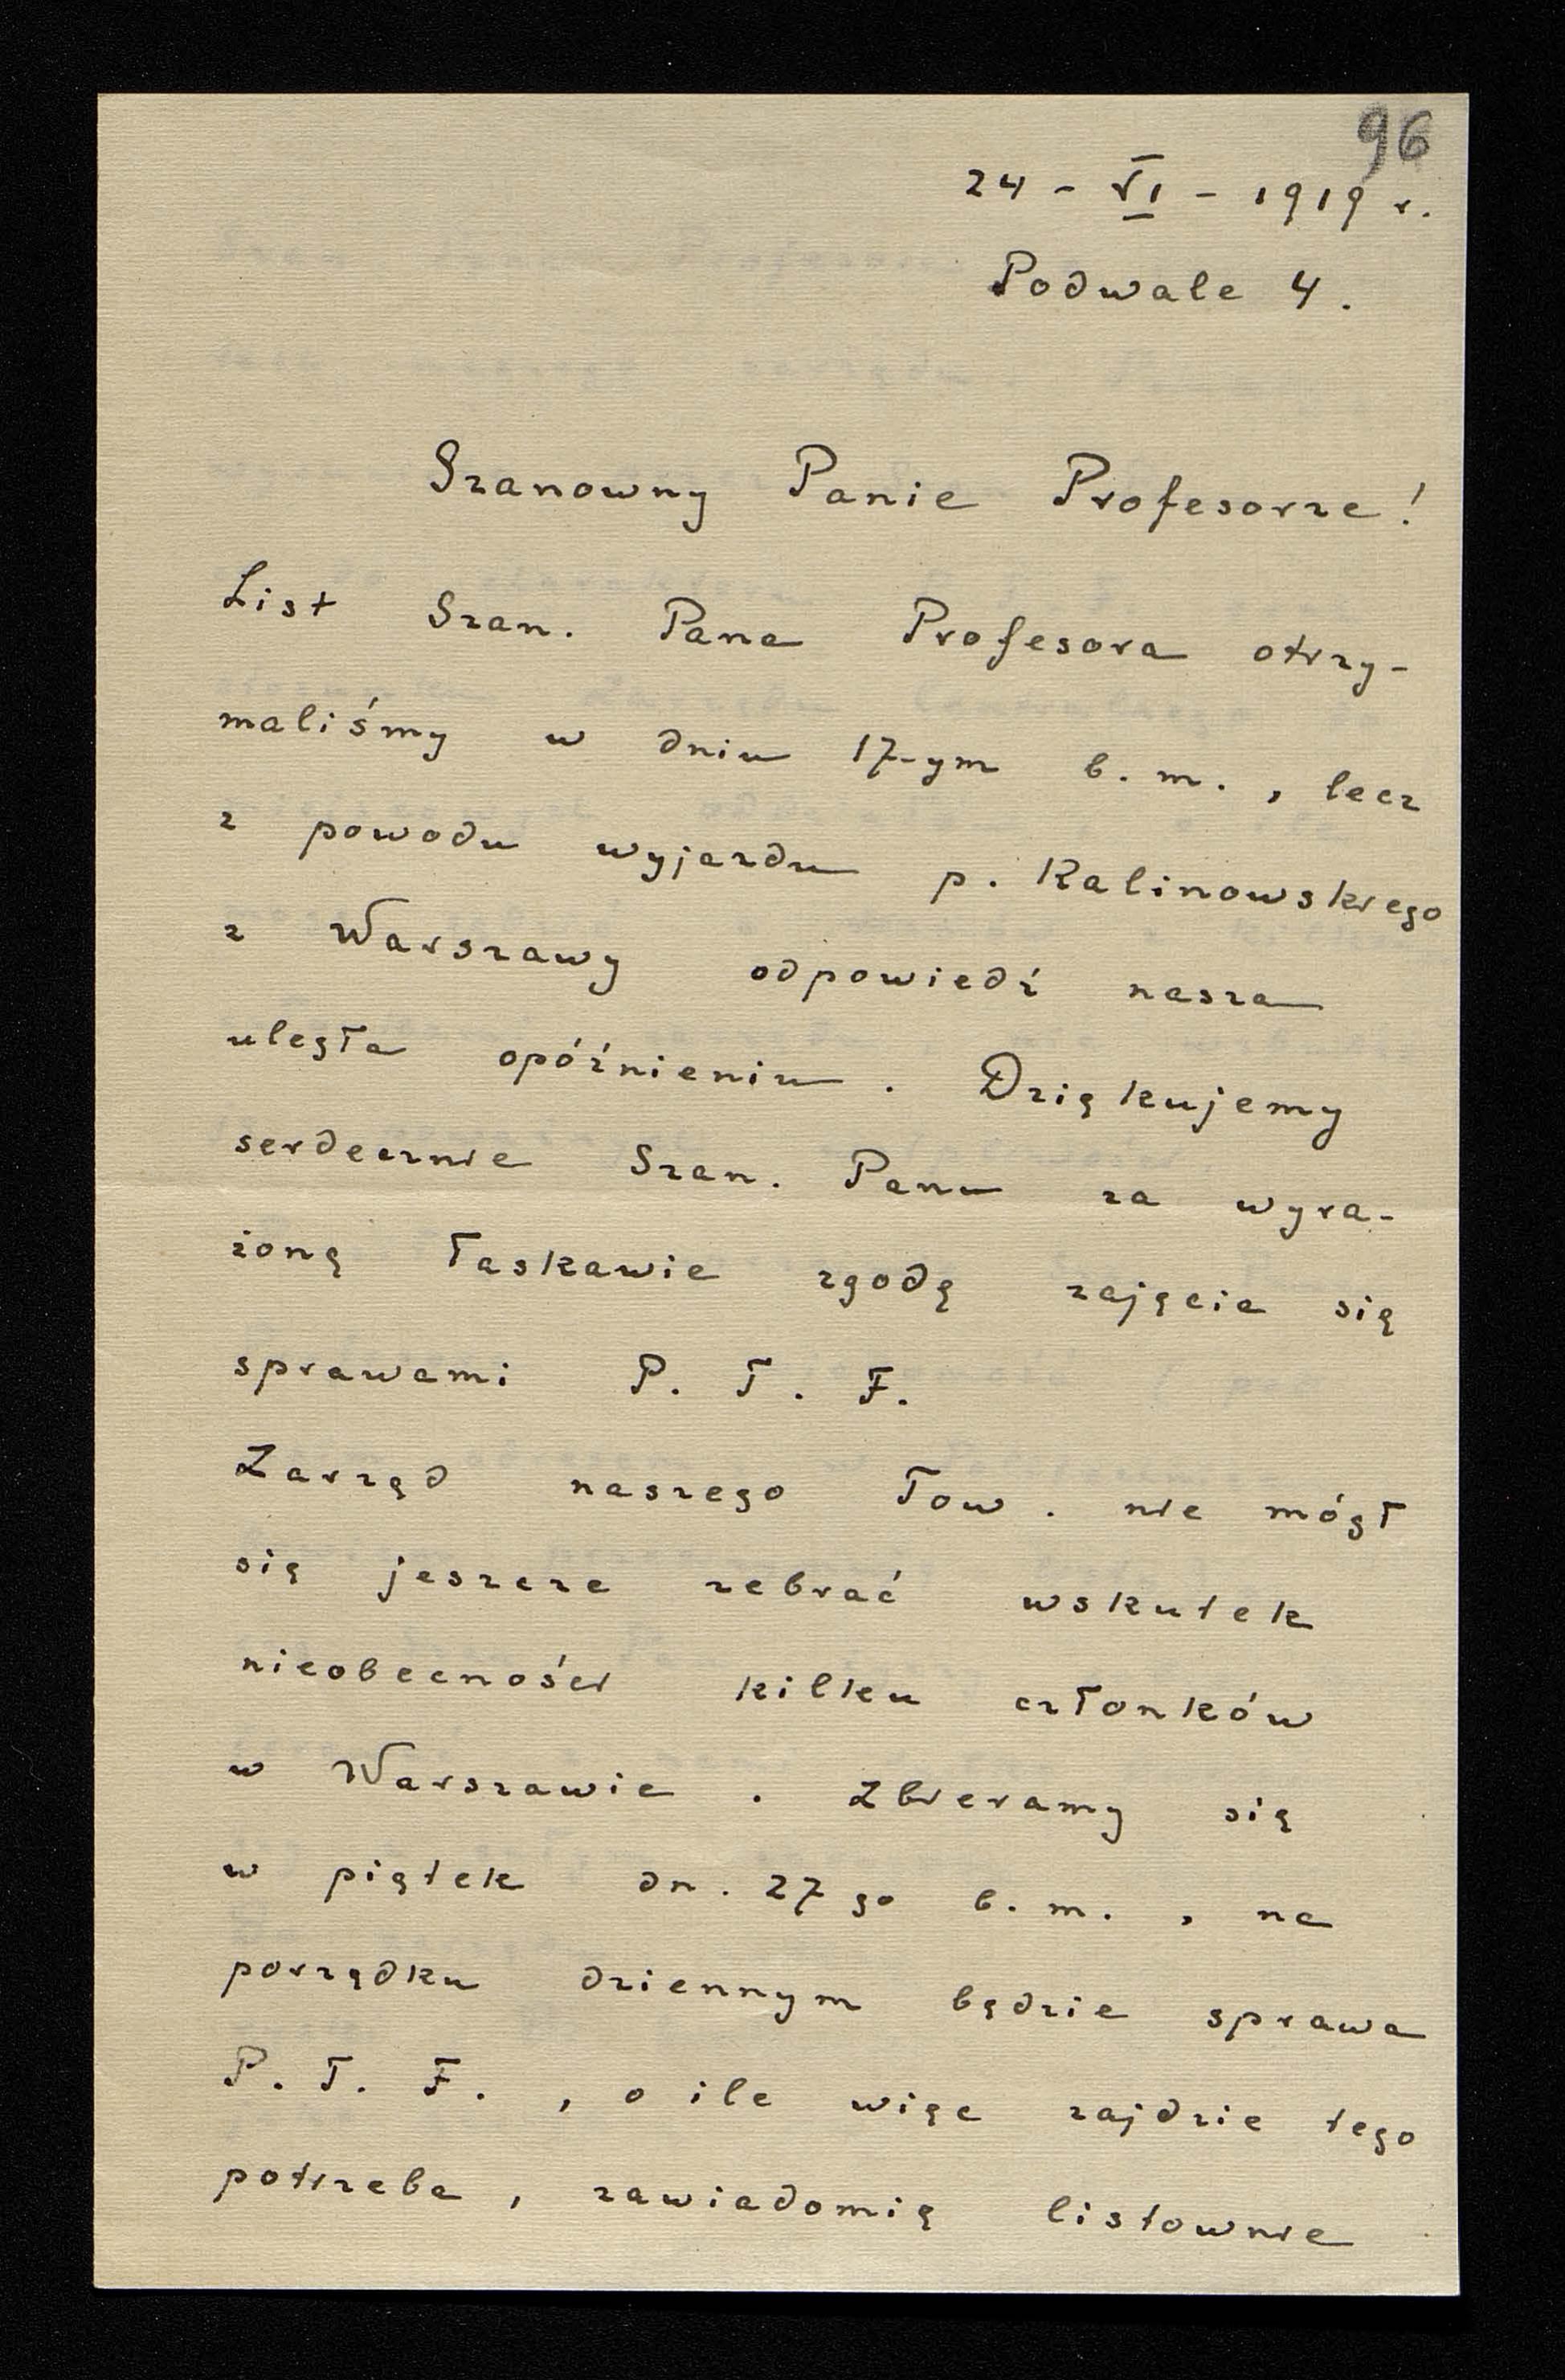 96
24 - VI - 1919 r.
Podwale 4.
Szanowny Panie Profesorze!
List Szan. Pana Profesora otrzy-
maliśmy w dniu 17-ym b. m., lecz
z powodu wyjazdu p. Kalinowskiego
z Warszawy odpowiedź nasza
uległa opóźnieniu. Dziękujemy
serdecznie Szan. Panu za wyra-
żoną łaskawie zgodę zajęcia się
sprawami P. T. F.
Zarząd naszego Tow. nie mógł
się jeszcze zebrać wskutek
nieobecności kilku członków
w Warszawie. Zbieramy się
w piątek dn. 27 go b. m., na
porządku dziennym będzie sprawa
P. T. F., o ile więc zajdzie tego
potrzeba, zawiadomię listownie